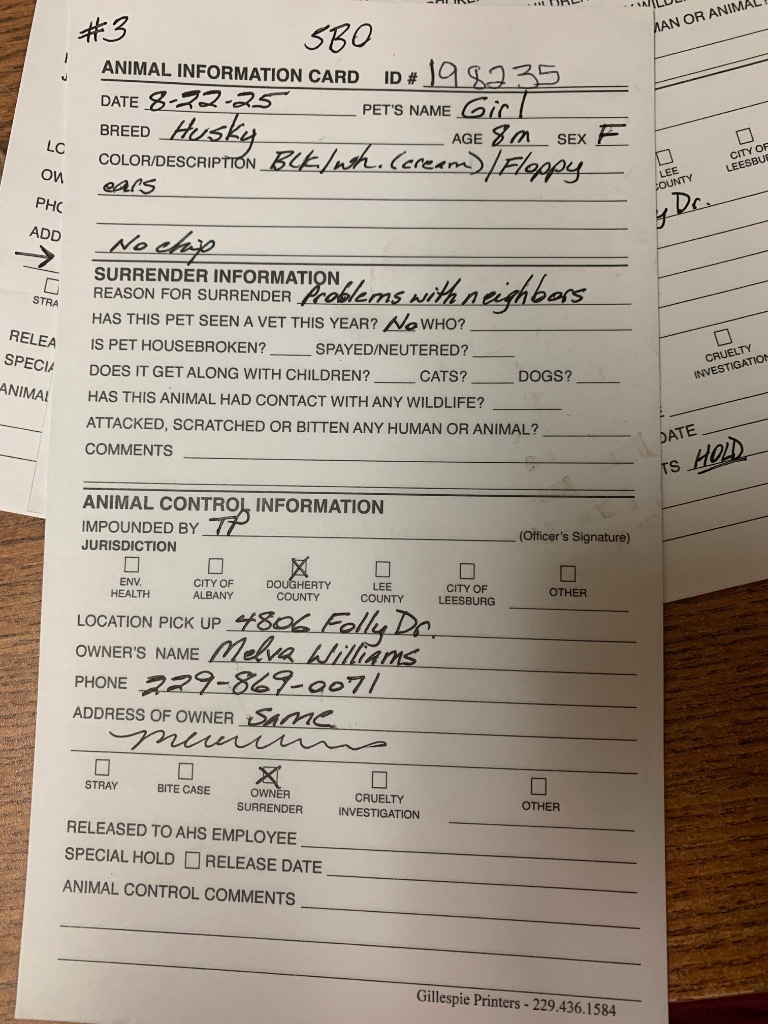 #3
SBO
ANIMAL INFORMATION CARD ID # 198235
DATE 8-22-25 PET'S NAME Girl
BREED Husky AGE 8m SEX F
COLOR/DESCRIPTION BLK/wh. (cream)/Floppy
ears
No chip
SURRENDER INFORMATION
REASON FOR SURRENDER Problems with neighbors
HAS THIS PET SEEN A VET THIS YEAR? No WHO?
IS PET HOUSEBROKEN? SPAYED/NEUTERED?
DOES IT GET ALONG WITH CHILDREN? CATS? DOGS?
HAS THIS ANIMAL HAD CONTACT WITH ANY WILDLIFE?
ATTACKED, SCRATCHED OR BITTEN ANY HUMAN OR ANIMAL?
COMMENTS
ANIMAL CONTROL INFORMATION
IMPOUNDED BY TP (Officer's Signature)
JURISDICTION
ENV. HEALTH CITY OF ALBANY DOUGHERTY COUNTY LEE COUNTY CITY OF LEESBURG OTHER
LOCATION PICK UP 4806 Folly Dr.
OWNER'S NAME Melva Williams
PHONE 229-869-0071
ADDRESS OF OWNER Same
STRAY BITE CASE OWNER SURRENDER CRUELTY INVESTIGATION OTHER
RELEASED TO AHS EMPLOYEE
SPECIAL HOLD RELEASE DATE
ANIMAL CONTROL COMMENTS
Gillespie Printers - 229.436.1584
LO
OW
PHO
ADD
STRA
RELEA
SPECIA
ANIMAL
MAN OR ANIMAL?
LEE COUNTY
CITY OF LEESBU
y Dr.
CRUELTY INVESTIGATION
DATE
TS HOLD